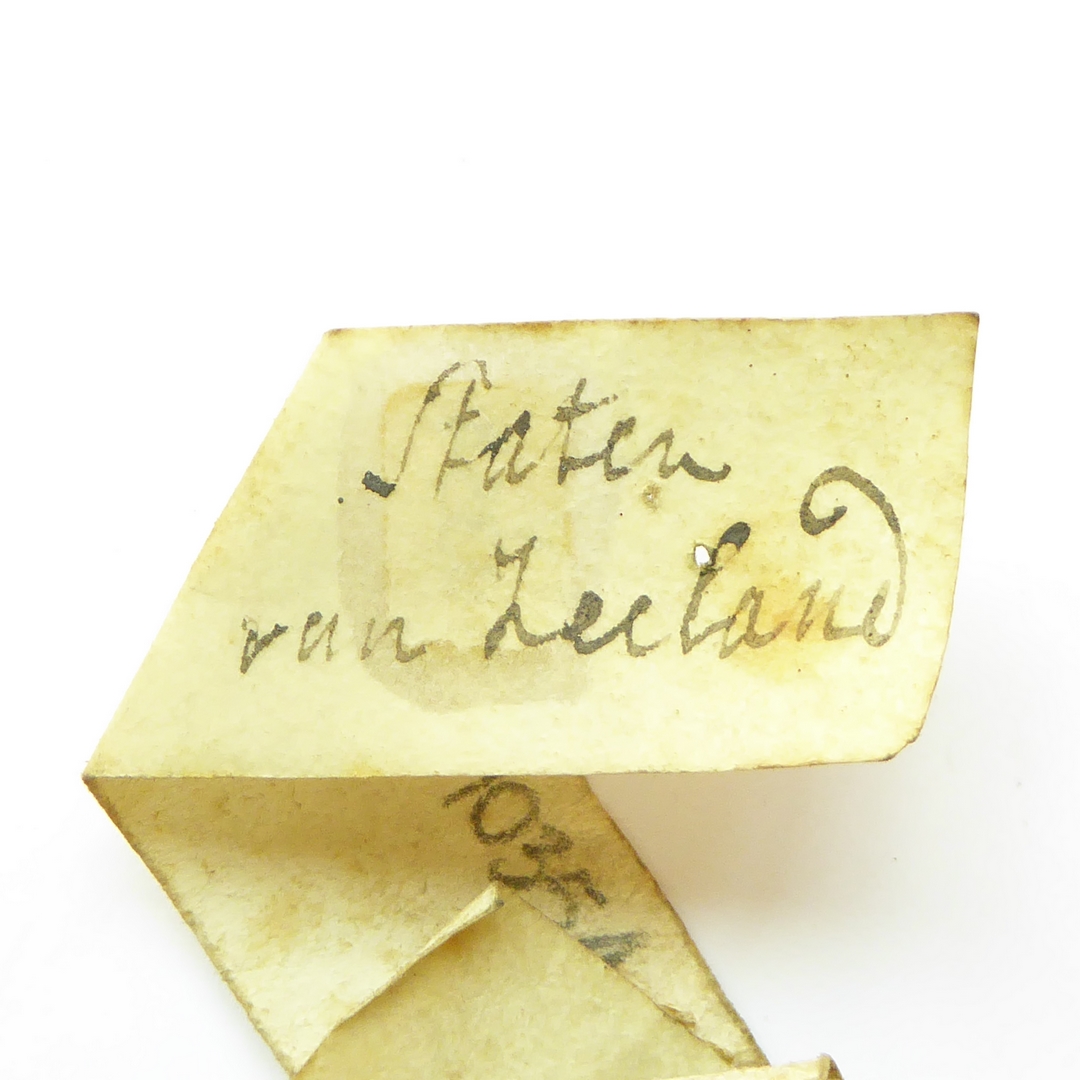 Staten
van Zeeland